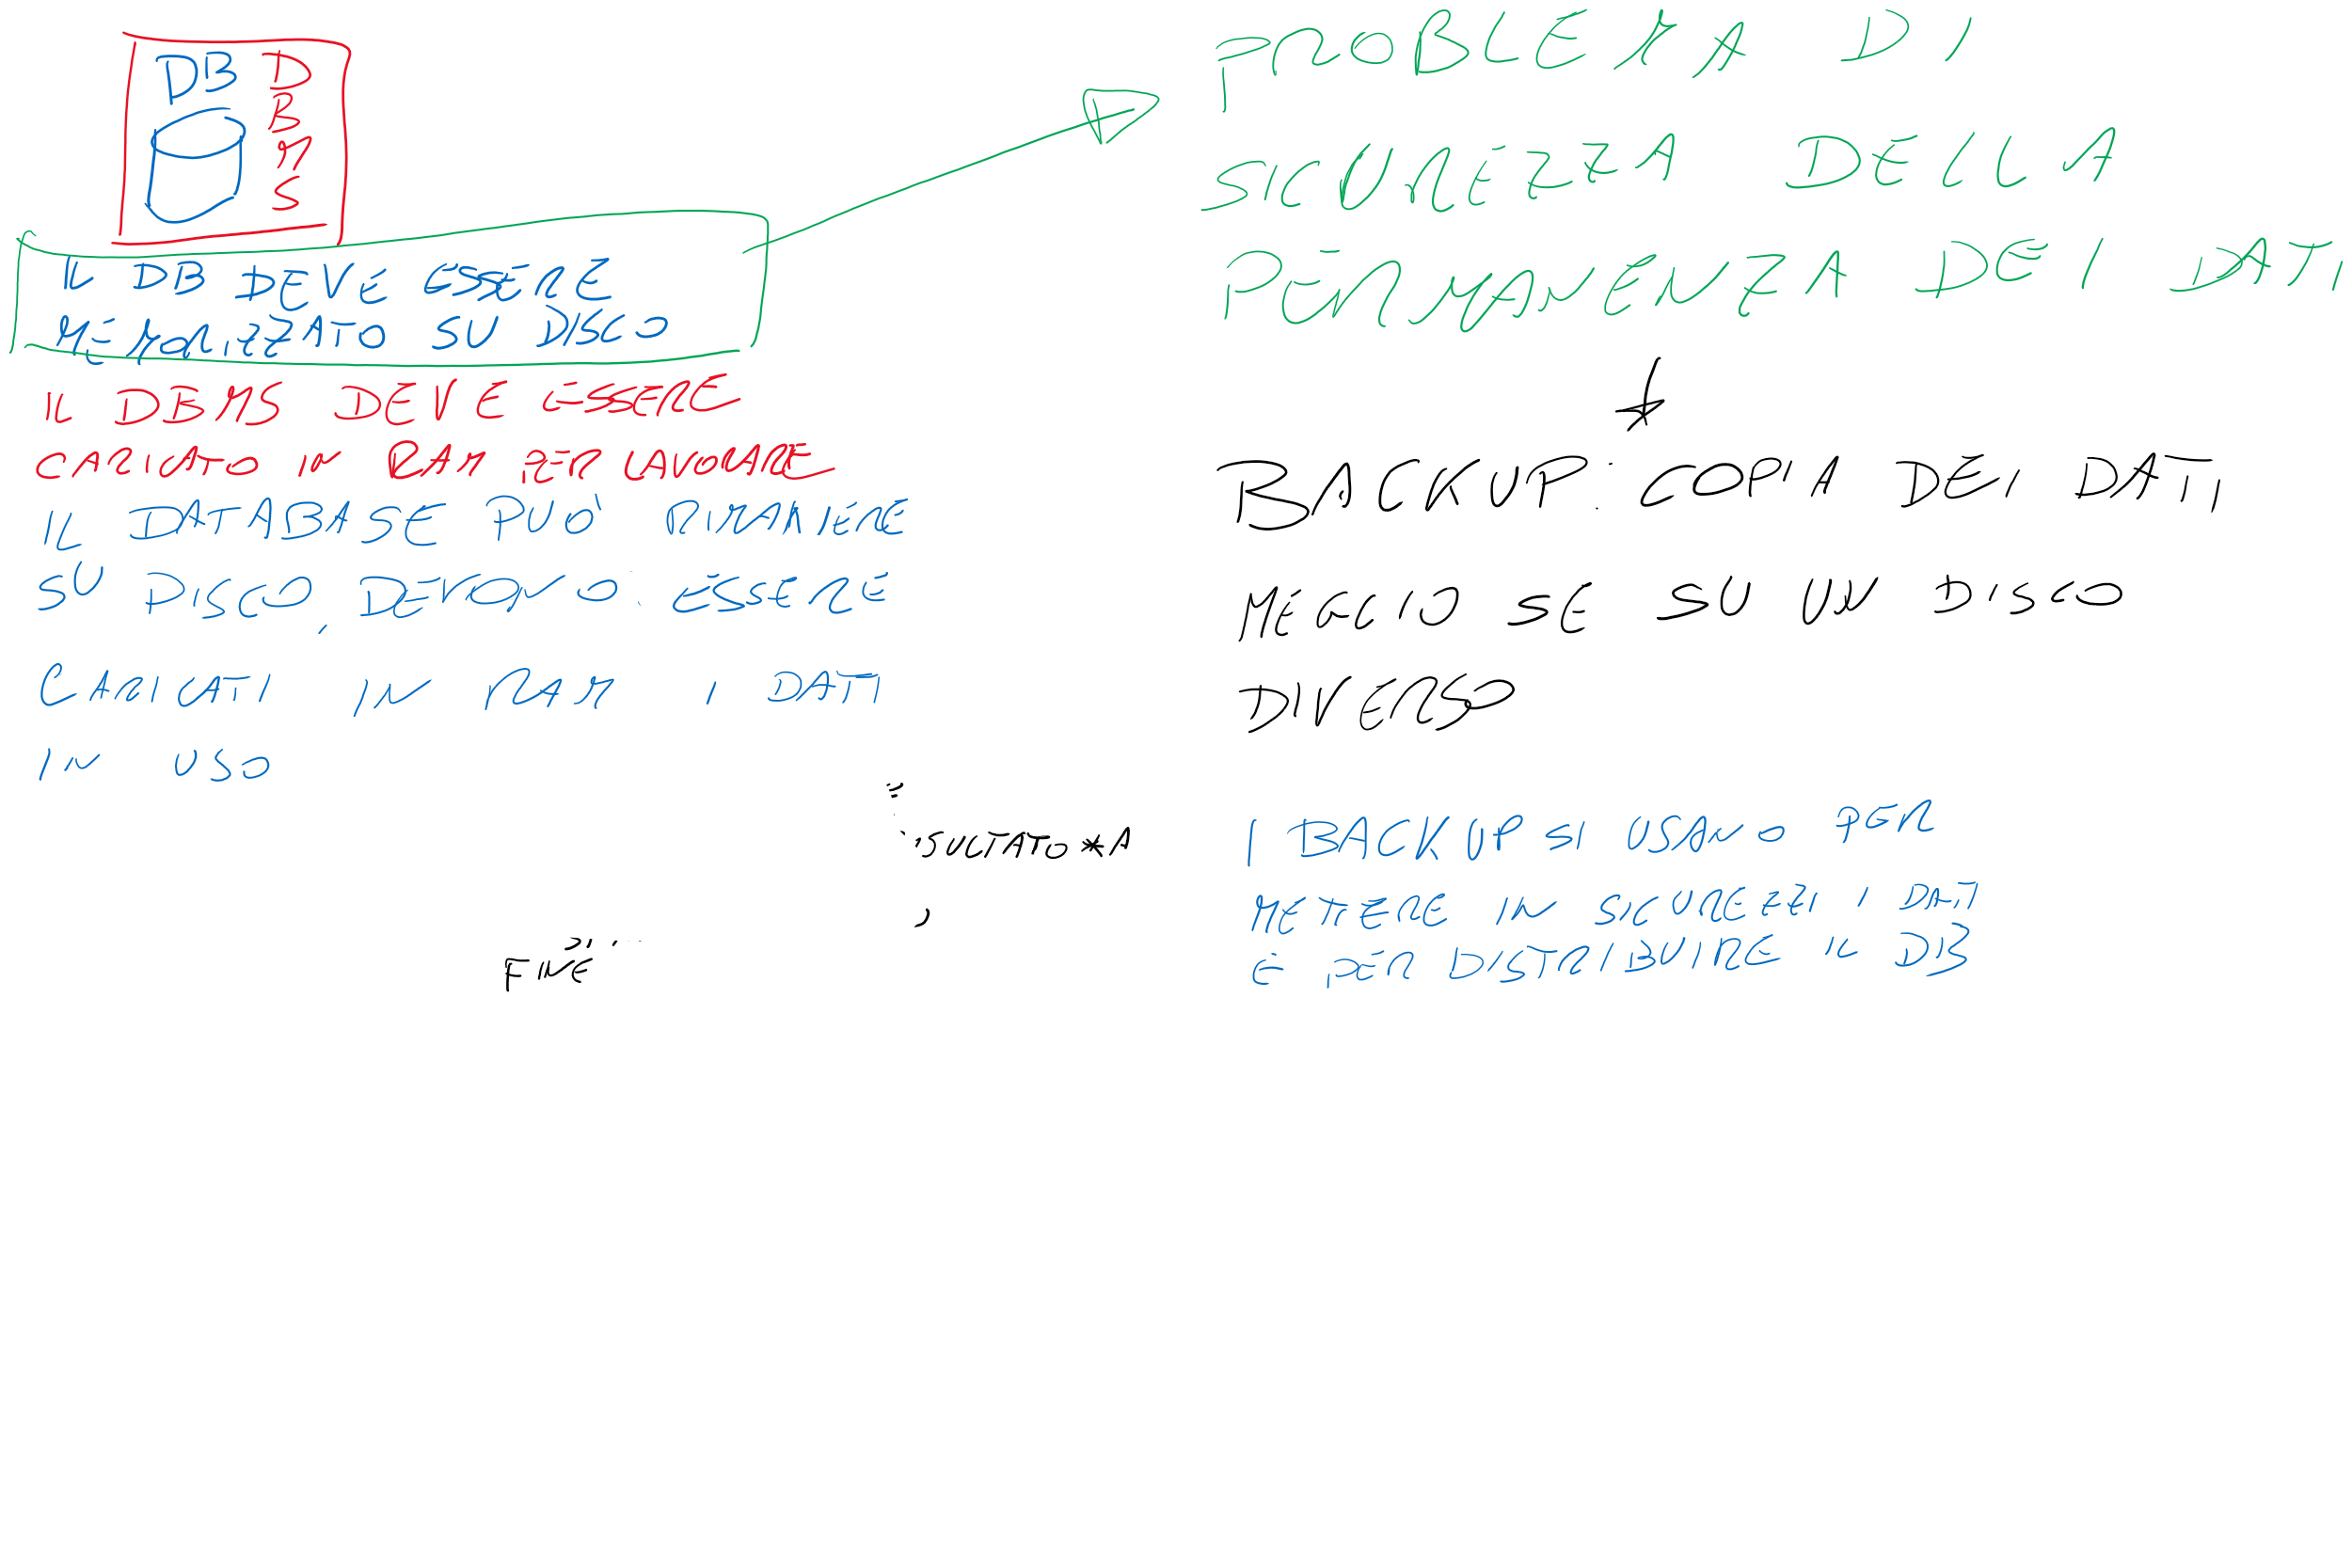 DB
DBMS
IL DB DEVE ESSERE
MEMORIZZATO SU DISCO
IL DBMS DEVE ESSERE
CARICATO IN RAM PER LAVORARE
IL DATABASE PUÒ RIMANERE
SU DISCO, DEVONO ESSERE
CARICATI IN RAM I DATI
IN USO
PROBLEMA DI
SICUREZZA DELLA
PERMANENZA DEI DATI
BACKUP: COPIA DEI DATI
MEGLIO SE SU UN DISCO
DIVERSO
I BACKUP SI USANO PER
METTERE IN SICUREZZA I DATI
E PER DISTRIBUIRE IL DB
SULTATO*A
FINE